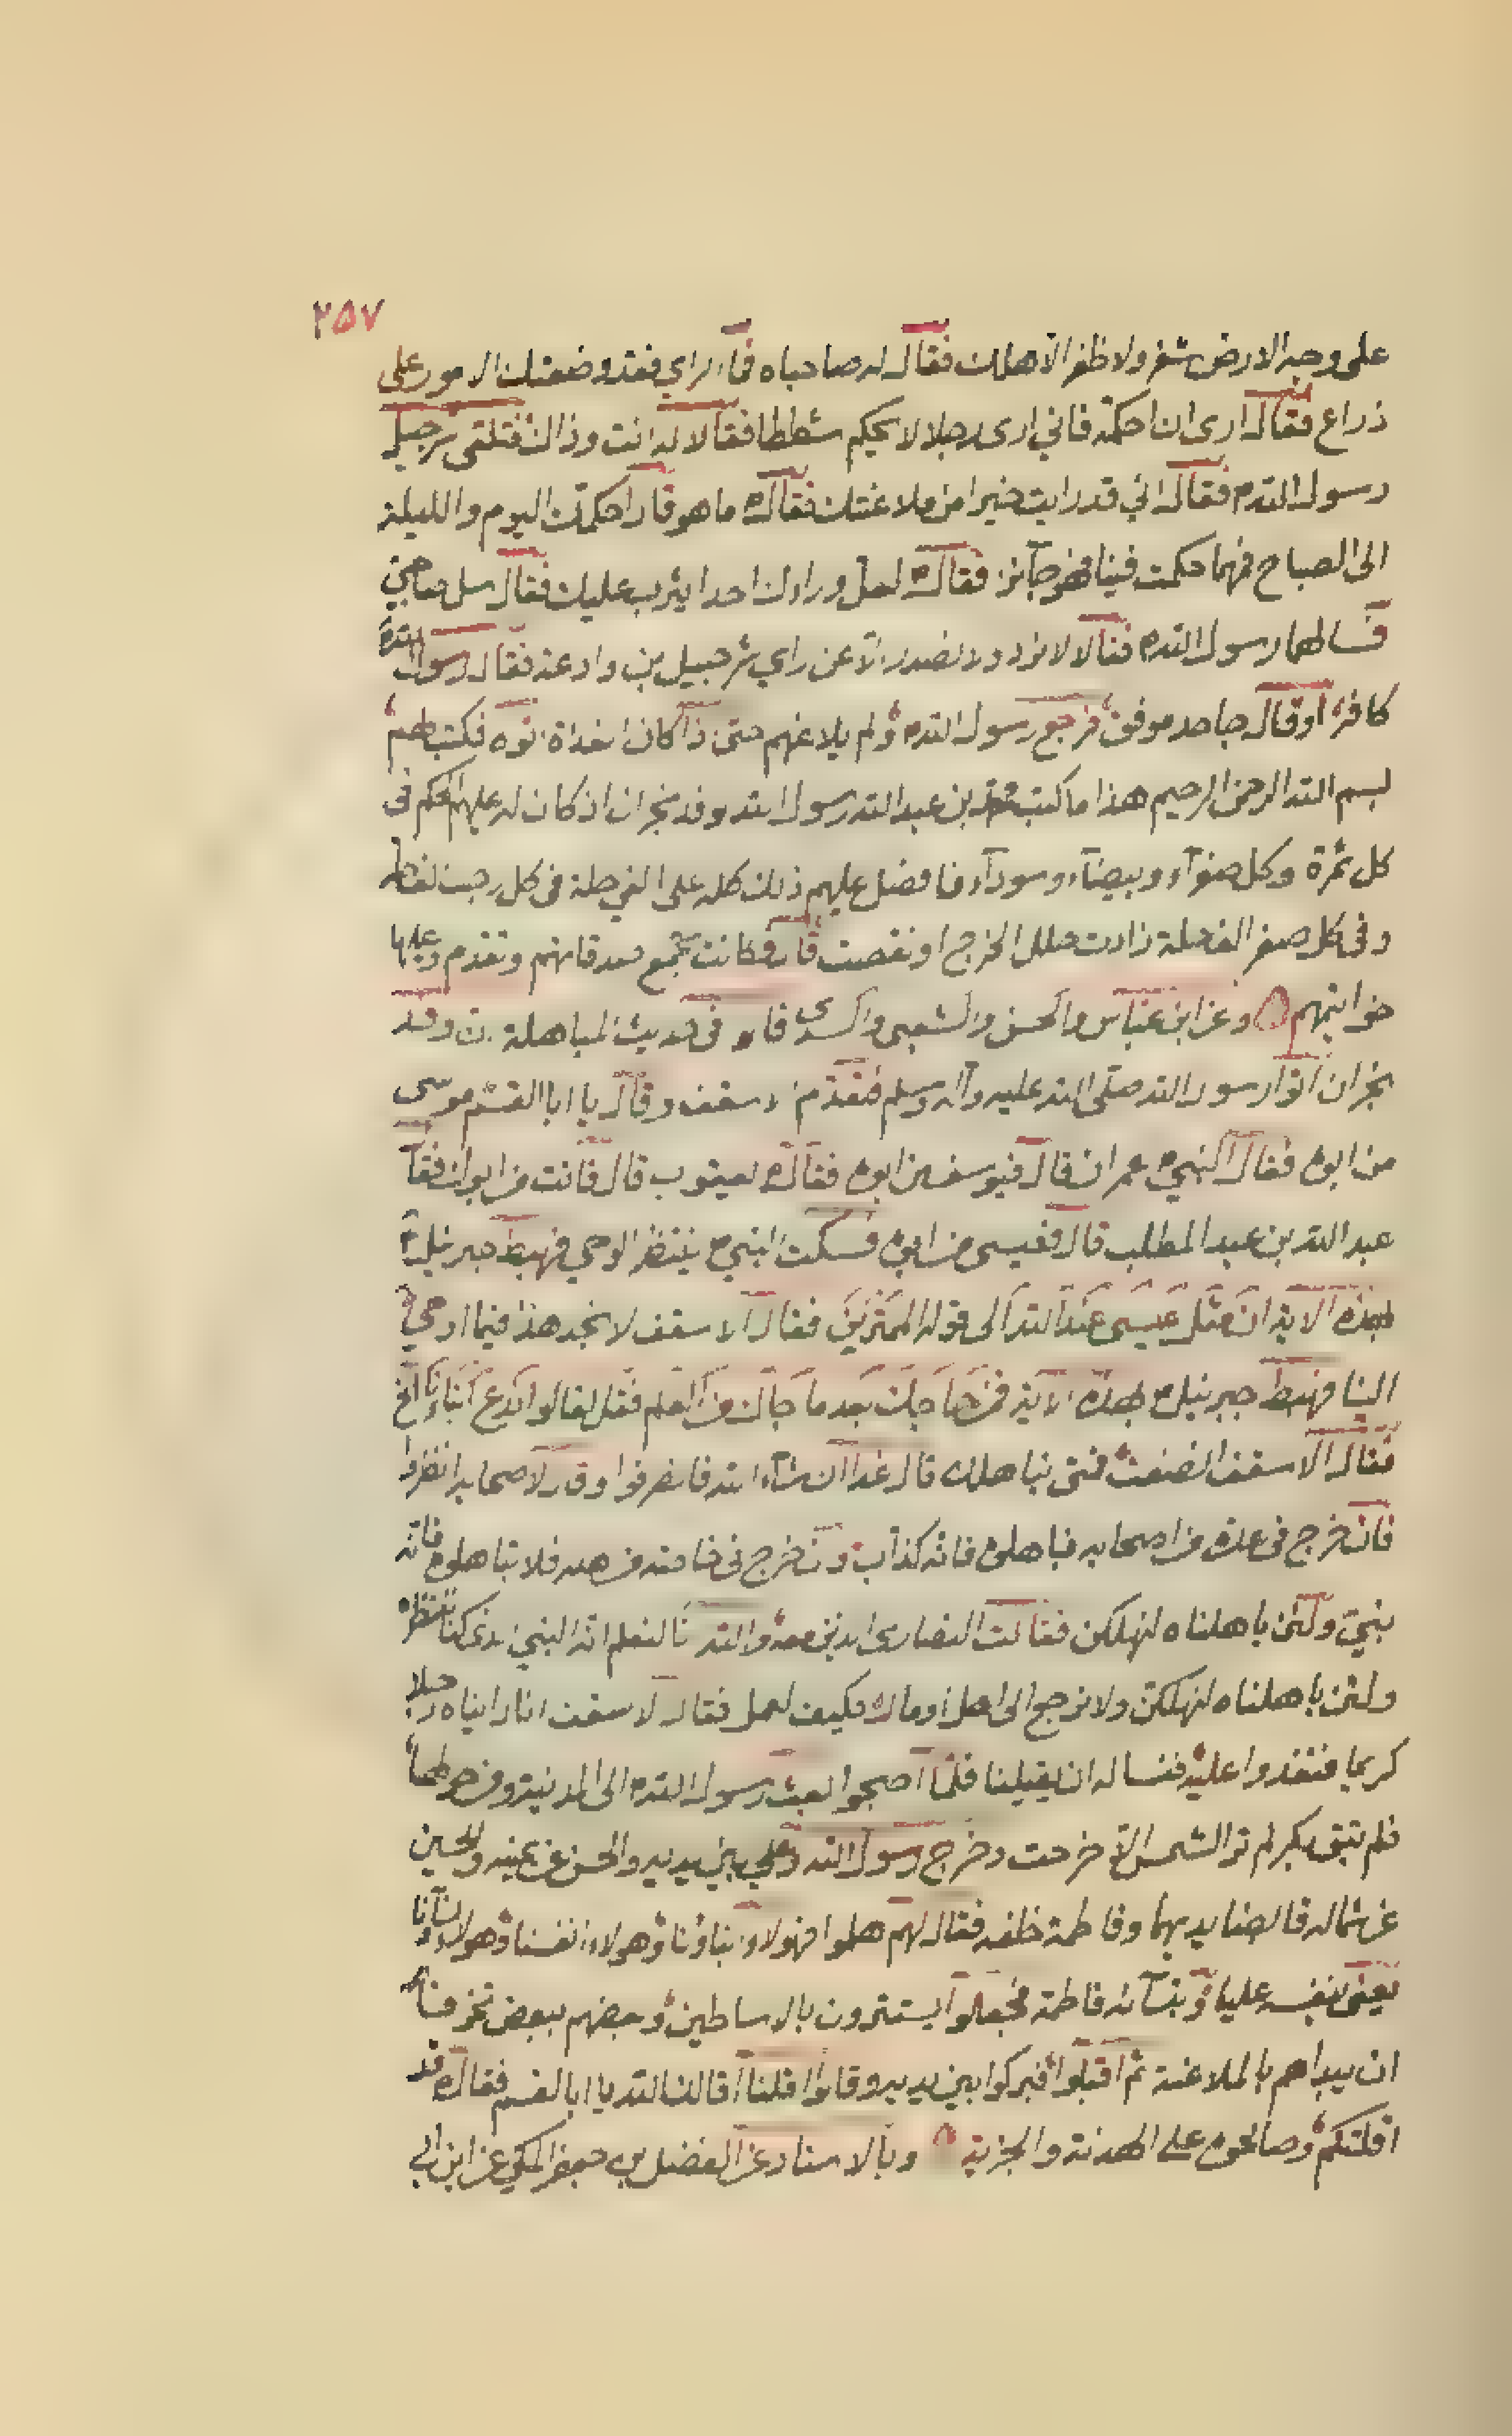 ٢٥٧
على وجه الارض شعر ولا ظفر الا هلك فقال له صاحباه فما الراي فقد وضعتك الامور على
ذراع فقال ارى ان احكمه فاني ارى رجلا لا يحكم شططا فقالا له انت وذاك فتلقى شرحبيل
رسول الله فقال اني قد رايت خيرا من ملاعنتك فقال ما هو قال احكمك اليوم والليلة
الى الصباح فمهما حكمت فينا فهو جائز فقال لعل وراءك احدا يثرب عليك فقال سل صاحبي
فسالهما رسول الله فقالا لا نرد ولا نصدر الا عن راي شرحبيل بن وادعة فقال رسول الله
كافر او قال جاحد موفق فرجع رسول الله ولم يلاعنهم حتى اذا كان الغداة اتوه فكتب لهم
بسم الله الرحمن الرحيم هذا ما كتب محمد بن عبد الله رسول الله وفد نجران ان كان له عليهم الحكم في
كل ثمرة وكل صفرآء وبيضآء وسودآء فافضل عليهم ذلك كله على الفي حلة في كل رجب الف حلة
وفي كل صفر الف حلة زادت حلل الخرج او نقصت قال وكانت تجمع صدقاتهم وتقدم عليها
خواتيمهم وعن ابن عباس والحسن والشعبي والسدي قالوا في حديث المباهلة ان وفد
نجران اتوا رسول الله صلى الله عليه وآله وسلم فتقدم الاسقف وقال يا ابا القسم موسى
من ابوه فقال النبي عمران قال فيوسف من ابوه فقال يعقوب قال فانت من ابوك فقال
عبد الله بن عبد المطلب قال فعيسى من ابوه فسكت النبي ينتظر الوحي فهبط جبرئيل
بهذه الاية ان مثل عيسى عند الله الى قوله الممترين فقال الاسقف لا نجد هذا فيما اوحي
الينا فهبط جبرئيل بهذه الاية فمن حاجك بعد ما جاك من العلم فقل تعالوا ندع ابناءنا الخ
فقال الاسقف انصفت فمتى نباهلك قال غدا ان شاء الله فانصرفوا وقال لاصحابه انظروا
فان خرج في عدة من اصحابه فباهلوه فانه كذاب وان خرج في خاصته من اهله فلا تباهلوه فانه
نبي ولئن باهلناه لنهلكن فقالت النصارى الذين معه والله انا لنعلم انه النبي الذي كنا ننتظره
ولئن باهلناه لنهلكن ولا نرجع الى اهل او مال فكيف نعمل فقال الاسقف انا رايناه رجلا
كريما فنغدوا عليه فنساله ان يقيلنا فلما اصبحوا بعث رسول الله الى المدينة ومن حولها
فلم تبق بكر لم تر الشمس الا خرجت وخرج رسول الله وعلي بين يديه والحسن عن يمينه والحسين
عن شماله قابضا بيديهما وفاطمة خلفه فقال لهم هلموا فهولاء ابناؤنا وهولاء انفسنا وهولاء نساؤنا
يعني بنفسه عليا وبنسائه فاطمة فجعلوا يستترون بالاساطين وبعضهم ببعض تخوفا
ان يبداهم بالملاعنة ثم اقبلوا فبركوا بين يديه وقالوا اقلنا اقالك الله يا ابا القسم فقال قد
اقلتكم وصالحوه على الهدنة والجزية وبالاسناد عن الفضل بن جعفر المكي عن ابن ابي